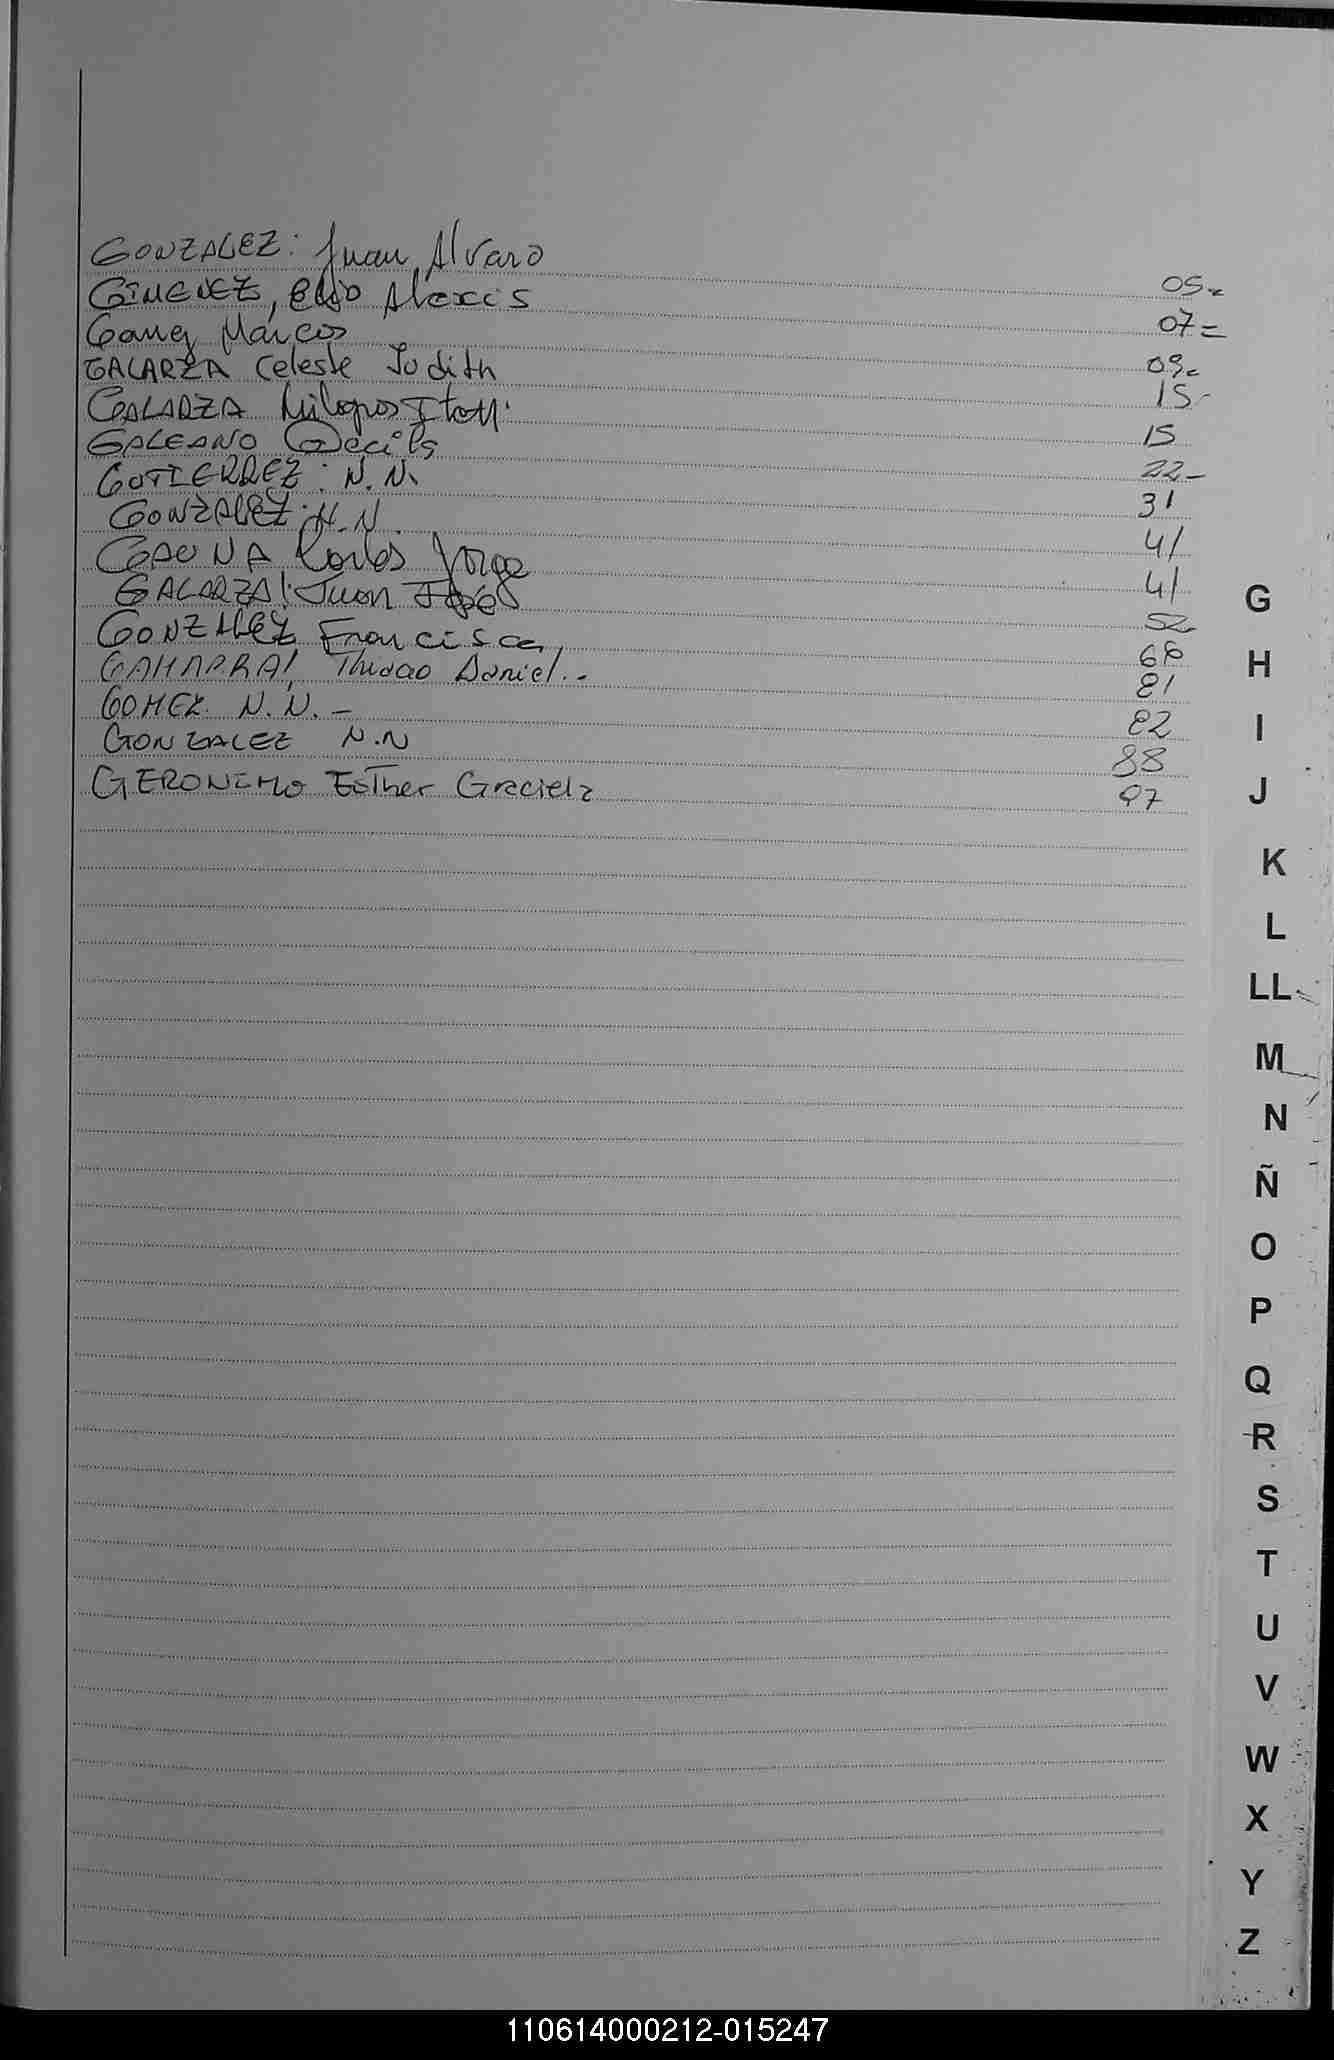 GONZALEZ: Juan Alvaro 05=
GIMENEZ, Elio Alexis 07=
Marcos 09=
GALARZA Celeste Judith 15-
GALARZA Milagros 15
GALEANO Cecilia 22-
GUTIERREZ: N.N. 31
GONZALEZ: N.N. 41
GAUNA Carlos Jorge 41
GALARZA: Juan José 52
GONZALEZ Francisca, 68
GAMARRA, Daniel.. 81
GOMEZ N.N.- 82
GONZALEZ N.N 88
GERONIMO Esther Graciela 97
G
H
I
J
K
L
LL
M
N
Ñ
O
P
Q
R
S
T
U
V
W
X
Y
Z
110614000212-015247